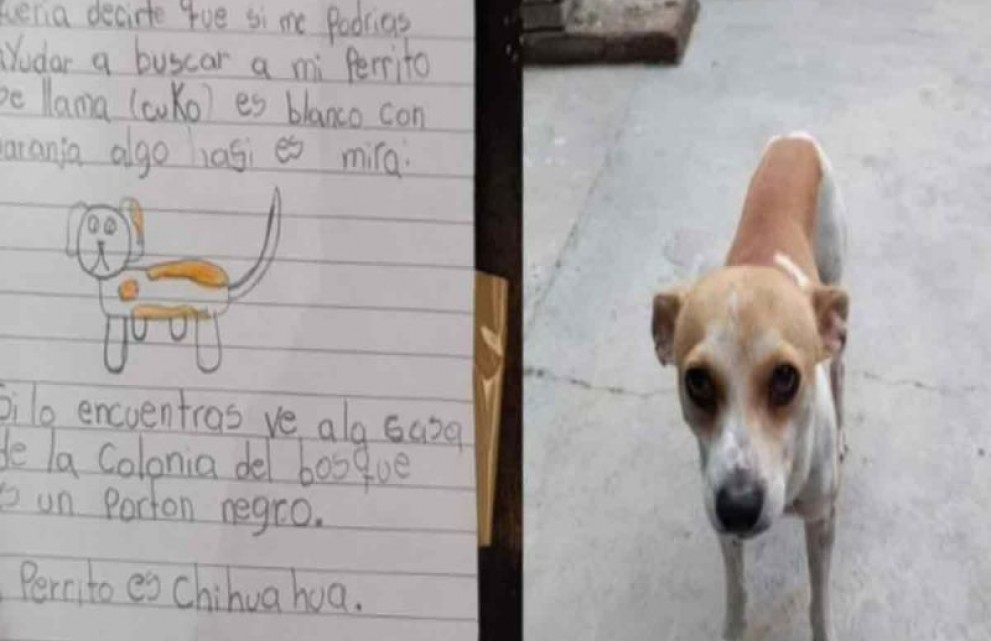 ueria decirte que si me podrias
ayudar a buscar a mi perrito
se llama (cuko) es blanco con
naranja algo hasi es mira:
Si lo encuentras ve ala casa
de la Colonia del bosque
es un Porton negro.
Perrito es Chihuahua.